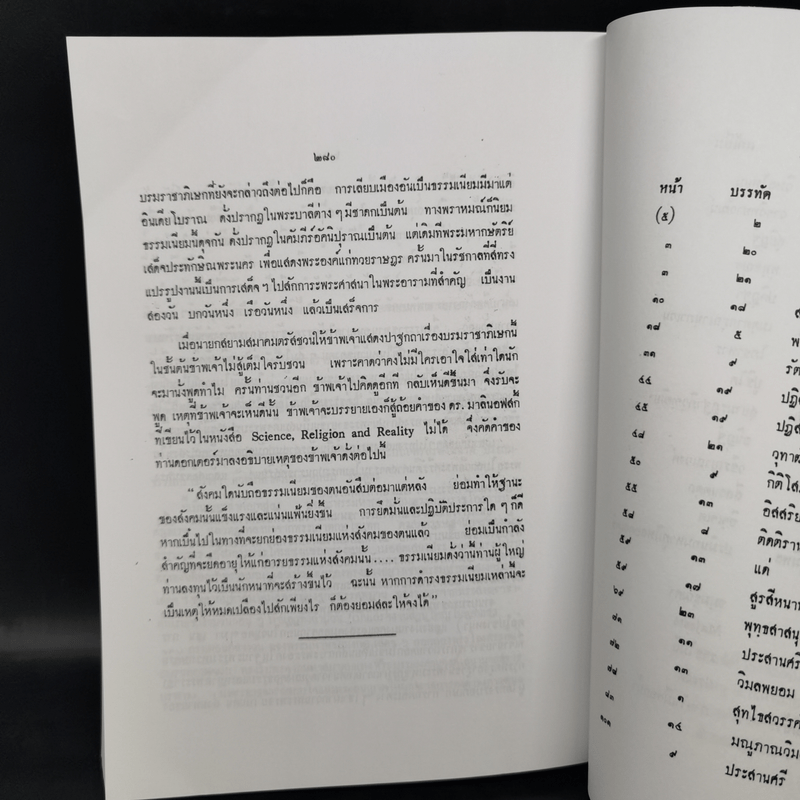 ๒๘๐
บรมราชาภิเษกที่ยังจะกล่าวถึงต่อไปก็คือ การเลียบเมืองอันเป็นธรรมเนียมมีมาแต่
อินเดียโบราณ ดั่งปรากฏในพระบาลีต่าง ๆ มีชาดกเป็นต้น ทางพราหมณ์ก็นิยม
ธรรมเนียมนี้ดุจกัน ดั่งปรากฏในคัมภีร์อัคนิปุราณเป็นต้น แต่เดิมทีพระมหากษัตริย์
เสด็จประทักษิณพระนคร เพื่อแสดงพระองค์แก่ทวยราษฎร ครั้นมาในรัชกาลที่สี่ทรง
แปรรูปงานนี้เป็นการเสด็จ ฯ ไปสักการะพระศาสนาในพระอารามที่สำคัญ เป็นงาน
สองวัน บกวันหนึ่ง เรือวันหนึ่ง แล้วเป็นเสร็จการ
เมื่อนายกสยามสมาคมตรัสชวนให้ข้าพเจ้าแสดงปาฐกถาเรื่องบรมราชาภิเษกนี้
ในชั้นต้นข้าพเจ้าไม่สู้เต็มใจรับชวน เพราะคาดว่าคงไม่มีใครเอาใจใส่เท่าใดนัก
จะมานั่งพูดทำไม ครั้นท่านชวนอีก ข้าพเจ้าไปคิดดูอีกที กลับเห็นดีขึ้นมา จึงรับจะ
พูด เหตุที่ข้าพเจ้าจะเห็นดีนั้น ข้าพเจ้าจะบรรยายเองก็สู้ถ้อยคำของ ดร. มาลินอฟสกี้
ที่เขียนไว้ในหนังสือ Science, Religion and Reality ไม่ได้ จึงคัดคำของ
ท่านดอกเตอร์มาลงอธิบายเหตุของข้าพเจ้าดั่งต่อไปนี้
"สังคมใดนับถือธรรมเนียมของตนอันสืบต่อมาแต่หลัง ย่อมทำให้ฐานะ
ของสังคมนั้นแข็งแรงและแน่นแฟ้นยิ่งขึ้น การยึดมั่นและปฏิบัติประการใด ๆ ก็ดี
หากเป็นไปในทางที่จะยกย่องธรรมเนียมแห่งสังคมของตนแล้ว ย่อมเป็นกำลัง
สำคัญที่จะยืดอายุให้แก่อารยธรรมแห่งสังคมนั้น .... ธรรมเนียมดั่งว่านี้ท่านผู้ใหญ่
ท่านลงทุนไว้เป็นนักหนาที่จะสร้างขึ้นไว้ ฉะนั้น หากการดำรงธรรมเนียมเหล่านี้จะ
เป็นเหตุให้หมดเปลืองไปสักเพียงไร ก็ต้องยอมสละให้จงได้"
หน้า บรรทัด
(๕) ๒
๓ ๒๐
๓ ๒๑
๑๐ ๑๘
๑๘ ๕
๓๑ ๙ รัต
๔๔ ๑๙ ปฏิ
๔๕ ๑๙ ปฏิส
๔๘ ๒๑ วุฑา
๕๐ ๙ กิติโส
๕๕ ๑๓ อิสสริย
๕๘ ๘ ติดติราน
๕๙ ๑๓ แด่
๖๙ ๑๗ สูรสีหนา
๗๑ ๒๓ พุทธสาสนุ
๗๒ ๑๑ ประสานศรี
๗๘ ๑๓ วิมลพยอม
๘๓ ๑ สุทไธสวรรค
๑๐๑ ๑๔ มณูภาณวิม
๙ ประสานศรี